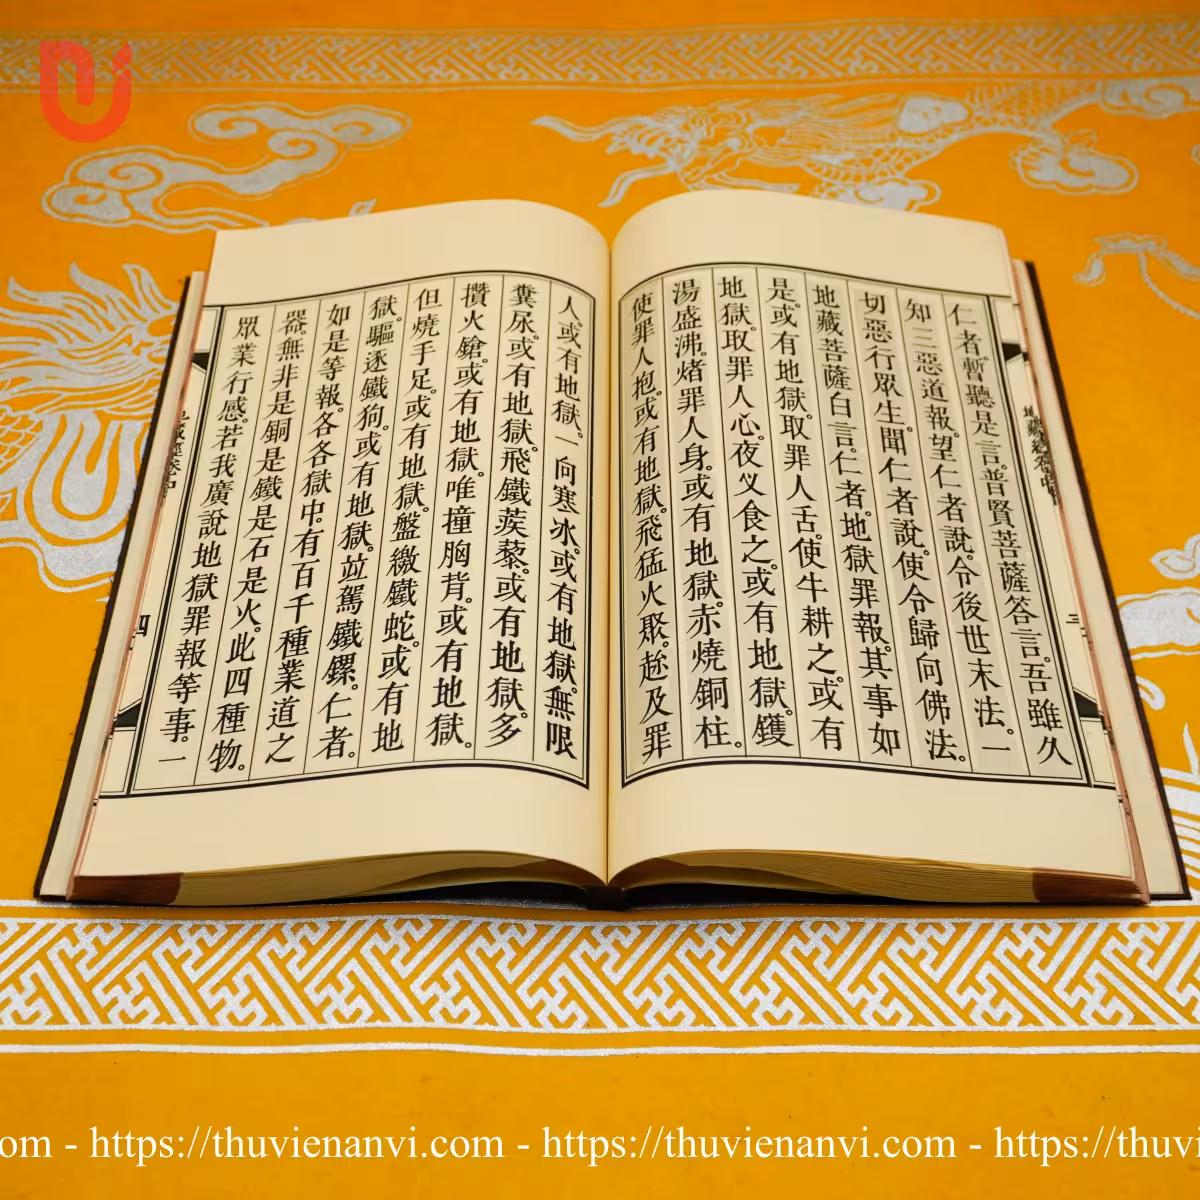 仁者。暫聽是言。普賢菩薩答言。吾雖久
知三惡道報。望仁者說。令後世末法。一
切惡行眾生。聞仁者說。使令歸向佛法。
地藏菩薩白言。仁者。地獄罪報。其事如
是。或有地獄。取罪人舌。使牛耕之。或有
地獄。取罪人心。夜叉食之。或有地獄。鑊
湯盛沸。煮罪人身。或有地獄。赤燒銅柱。
使罪人抱。或有地獄。飛猛火聚。趁及罪
人。或有地獄。一向寒冰。或有地獄。無限
糞尿。或有地獄。飛鐵蒺藜。或有地獄。多
攢火鎗。或有地獄。唯撞胸背。或有地獄。
但燒手足。或有地獄。盤繳鐵蛇。或有地
獄。驅逐鐵狗。或有地獄。竝駕鐵騾。仁者。
如是等報。各各獄中。有百千種業道之
器。無非是銅是鐵是石是火。此四種物。
眾業行感。若我廣說地獄罪報等事。一
四
https://thuvienanvi.com - https://thuvienanvi.com